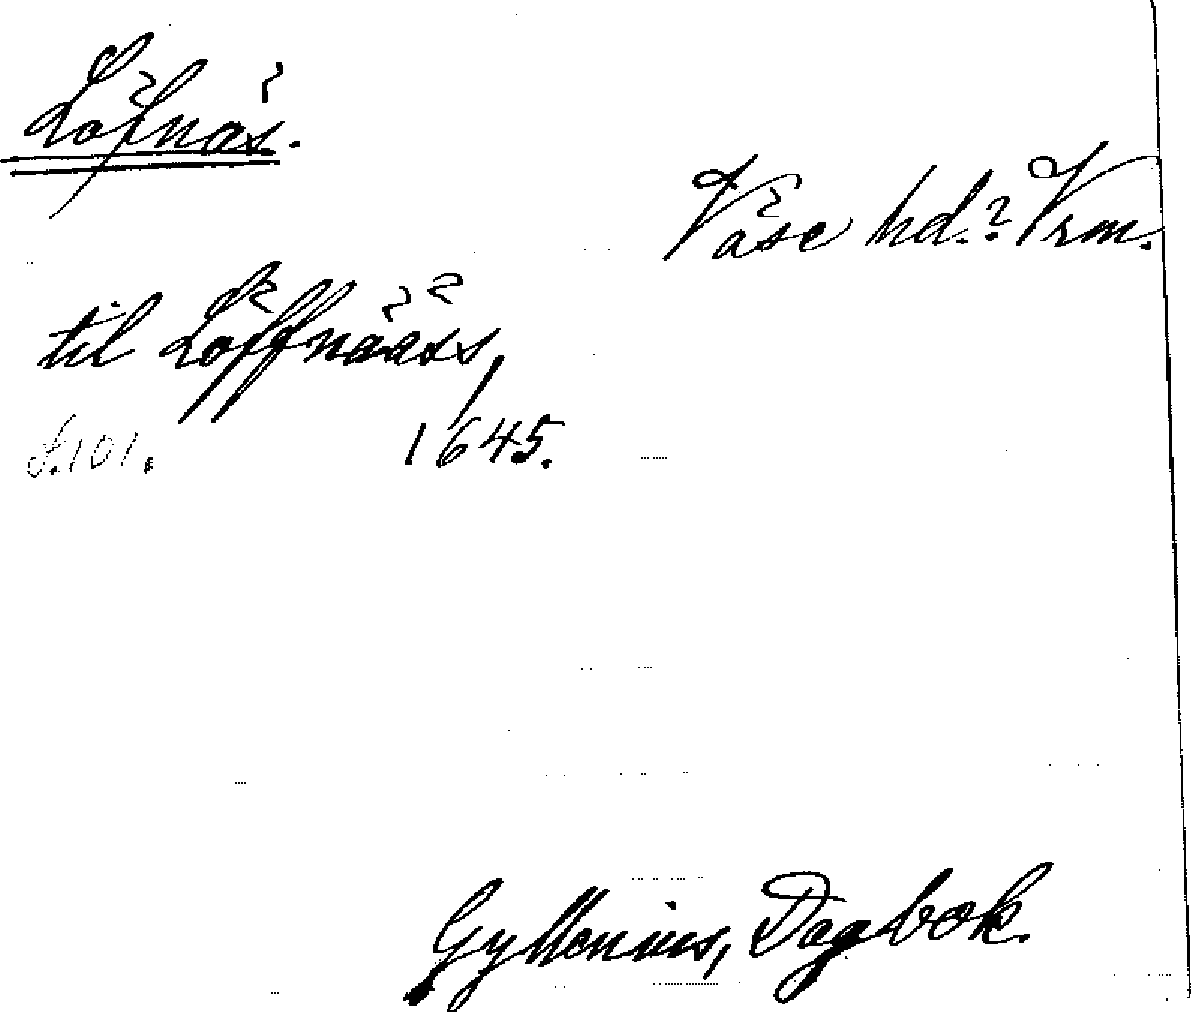 Löfnäs.
Väse hd.? Vrm.
til Löffnääss,
s. 101. 1645.
Gyllenius, Dagbok.